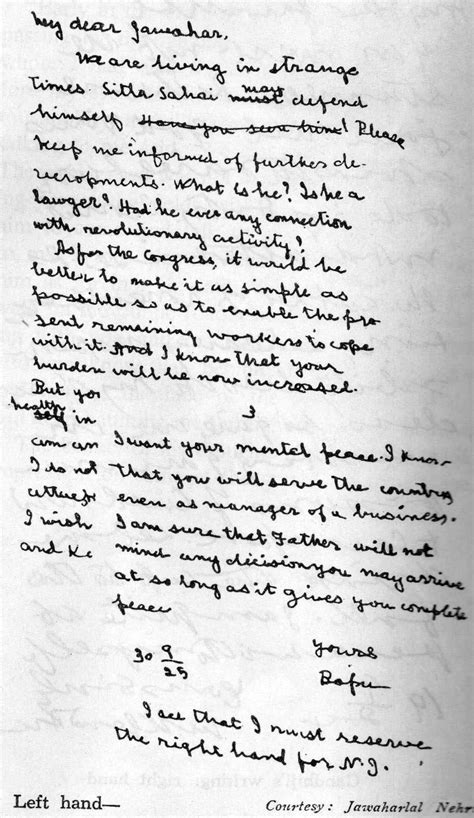 My dear Jawahar,
We are living in strange
times. Sitla Sahai may
must defend
himself. Have you seen him? Please
keep me informed of further de-
velopments. What is he? Is he a
lawyer? Had he ever any connection
with revolutionary activity?
As for the Congress, it would be
better to make it as simple as
possible so as to enable the pre
sent remaining workers to cope
with it. And I know that your
burden will be now increased.
But you
health in
3
I want your mental peace. I know
I do not that you will serve the country
even as manager of a business.
I wish I am sure that Father will not
and mind any decision you may arrive
at so long as it gives you complete
peace
30 9/25 Yours
Bapu
I see that I must reserve
the right hand for N.J.
Left hand— Courtesy: Jawaharlal Nehr